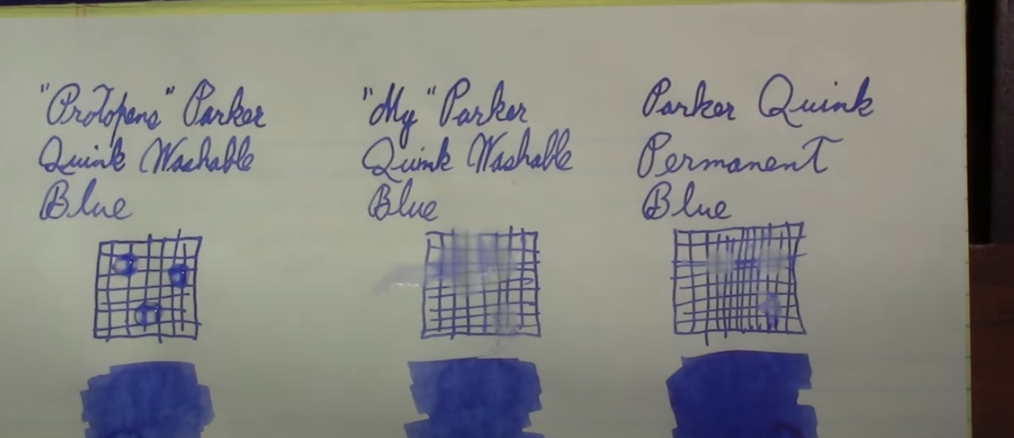 "Protopens" Parker
Quink Washable
Blue
"My" Parker
Quink Washable
Blue
Parker Quink
Permanent
Blue